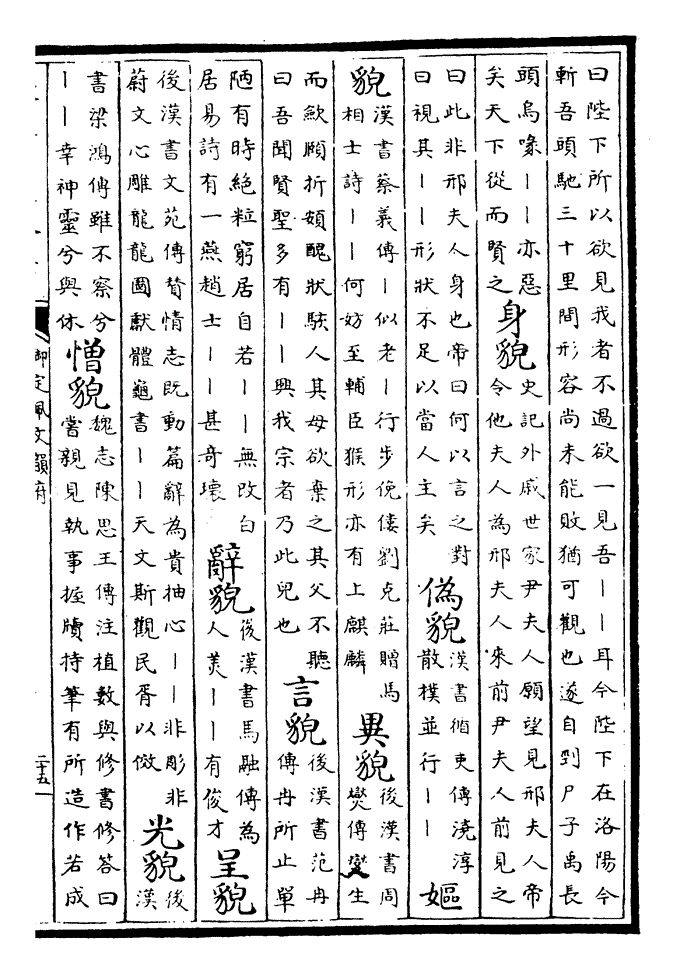 曰陛下所以欲見我者不過欲一見吾丨丨耳今陛下在洛陽今
斬吾頭馳三十里間形容尚未能敗猶可觀也遂自剄尸子禹長
頭烏喙丨丨亦惡
矣天下從而賢之
身貌
史記外戚世家尹夫人願望見邢夫人帝
令他夫人為邢夫人來前尹夫人前見之
曰此非邢夫人身也帝曰何以言之對
曰視其丨丨形狀不足以當人主矣
偽貌
漢書循吏傳澆淳
散樸並行丨丨
嫗
貌
漢書蔡義傳丨似老丨行步俛僂劉克莊贈馬
相士詩丨丨何妨至輔臣猴形亦有上麒麟
異貌
後漢書周
燮傳燮生
而欽頤折頞醜狀駭人其母欲棄之其父不聽
曰吾聞賢聖多有丨丨興我宗者乃此兒也
言貌
後漢書范冉
傳冉所止單
陋有時絕粒窮居自若丨丨無改白
居易詩有一燕趙士丨丨甚奇瓌
辭貌
後漢書馬融傳為
人美丨丨有俊才
呈貌
後漢書文苑傳贊情志既動篇辭為貴抽心丨丨非彫非
蔚文心雕龍龍圖獻體龜書丨丨天文斯觀民胥以傚
光貌
後
漢
書梁鴻傳雖不察兮
丨丨幸神靈兮與休
憎貌
魏志陳思王傳注植數與修書修答曰
嘗親見執事握牘持筆有所造作若成
御定佩文韻府
二十五